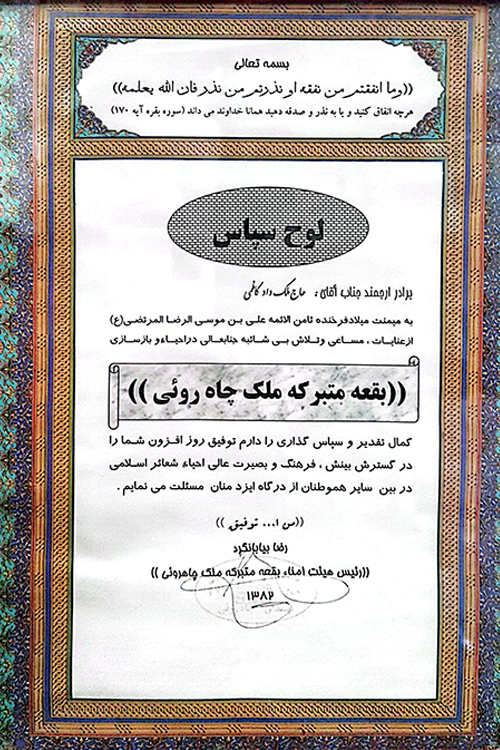 بسمه تعالی
((وما انفقتم من نفقه او نذرتم من نذر فان الله یعلمه))
هرچه انفاق کنید و یا به نذر و صدقه دهید همانا خداوند می داند (سوره بقره آیه ۱۷۰)
لوح سپاس
برادر ارجمند جناب آقای : حاج ملک داد کاظمی
به میمنت میلادفرخنده ثامن الائمه علی بن موسی الرضا المرتضی(ع)
ازعنایات ، مساعی وتلاش بی شائبه جنابعالی دراحیاءو بازسازی
((بقعه متبرکه ملک چاه روئی ))
کمال تقدیر و سپاس گذاری را دارم توفیق روز افزون شما را
در گسترش بینش ، فرهنگ و بصیرت عالی احیاء شعائر اسلامی
در بین سایر هموطنان از درگاه ایزد منان مسئلت می نمایم .
((من ا... توفیق ))
رضا بیابانگرد
((رئیس هیئت امناء بقعه متبرکه ملک چاهروئی ))
۱۳۸۲